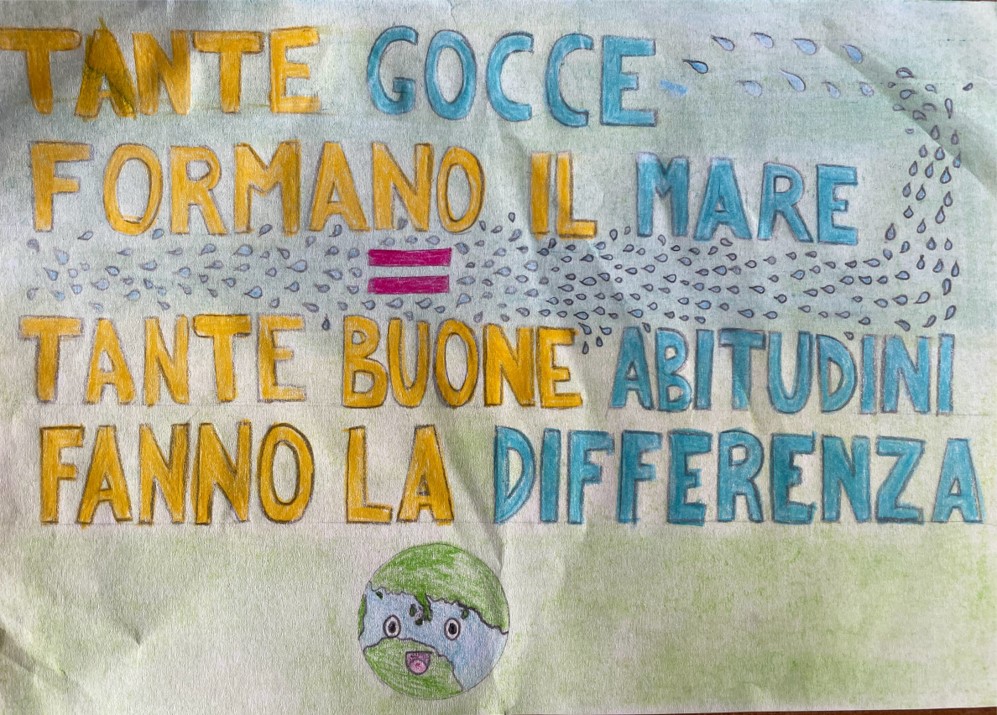 TANTE GOCCE
FORMANO IL MARE
=
TANTE BUONE ABITUDINI
FANNO LA DIFFERENZA